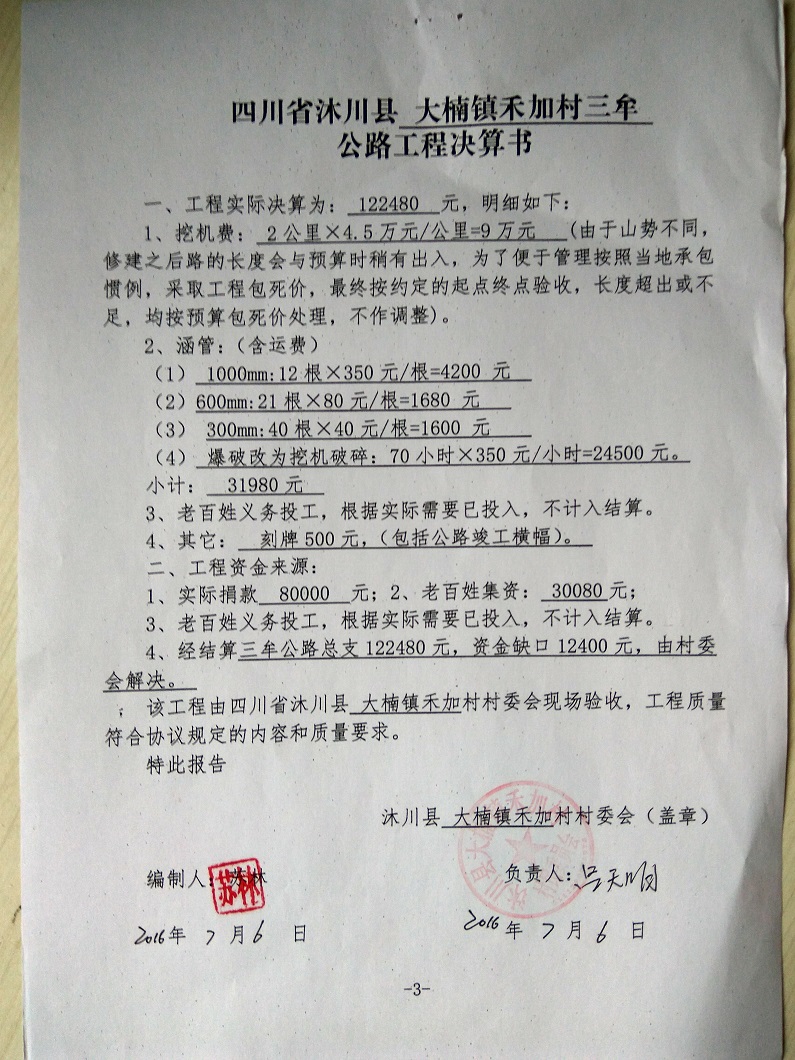 四川省沐川县 大楠镇禾加村三牟
公路工程决算书
一、工程实际决算为： 122480 元，明细如下：
1、挖机费： 2公里×4.5万元/公里=9万元 （由于山势不同，
修建之后路的长度会与预算时稍有出入，为了便于管理按照当地承包
惯例，采取工程包死价，最终按约定的起点终点验收，长度超出或不
足，均按预算包死价处理，不作调整）。
2、涵管：（含运费）
（1） 1000mm:12根×350元/根=4200 元
（2）600mm:21根×80元/根=1680 元
（3） 300mm:40根×40元/根=1600 元
（4） 爆破改为挖机破碎：70小时×350元/小时=24500元。
小计： 31980元
3、老百姓义务投工，根据实际需要已投入，不计入结算。
4、其它： 刻牌500元，（包括公路竣工横幅）。
二、工程资金来源：
1、实际捐款 80000 元；2、老百姓集资： 30080元；
3、老百姓义务投工，根据实际需要已投入，不计入结算。
4、经结算三牟公路总支122480元，资金缺口12400元，由村委
会解决。
该工程由四川省沐川县 大楠镇禾加村村委会现场验收，工程质量
符合协议规定的内容和质量要求。
特此报告
沐川县 大楠镇禾加村村委会（盖章）
编制人：苏林
苏林
负责人：吕天明
2016年 7 月6 日
2016年 7 月 6 日
-3-